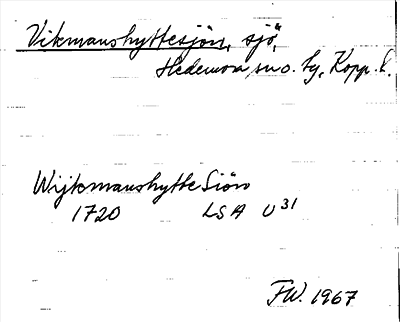 Vikmanshyttesjön, sjö,
Hedemora sn o. by, Kopp. l.
Wijkmanshytte Siön
1720 LSA U31
FW. 1967